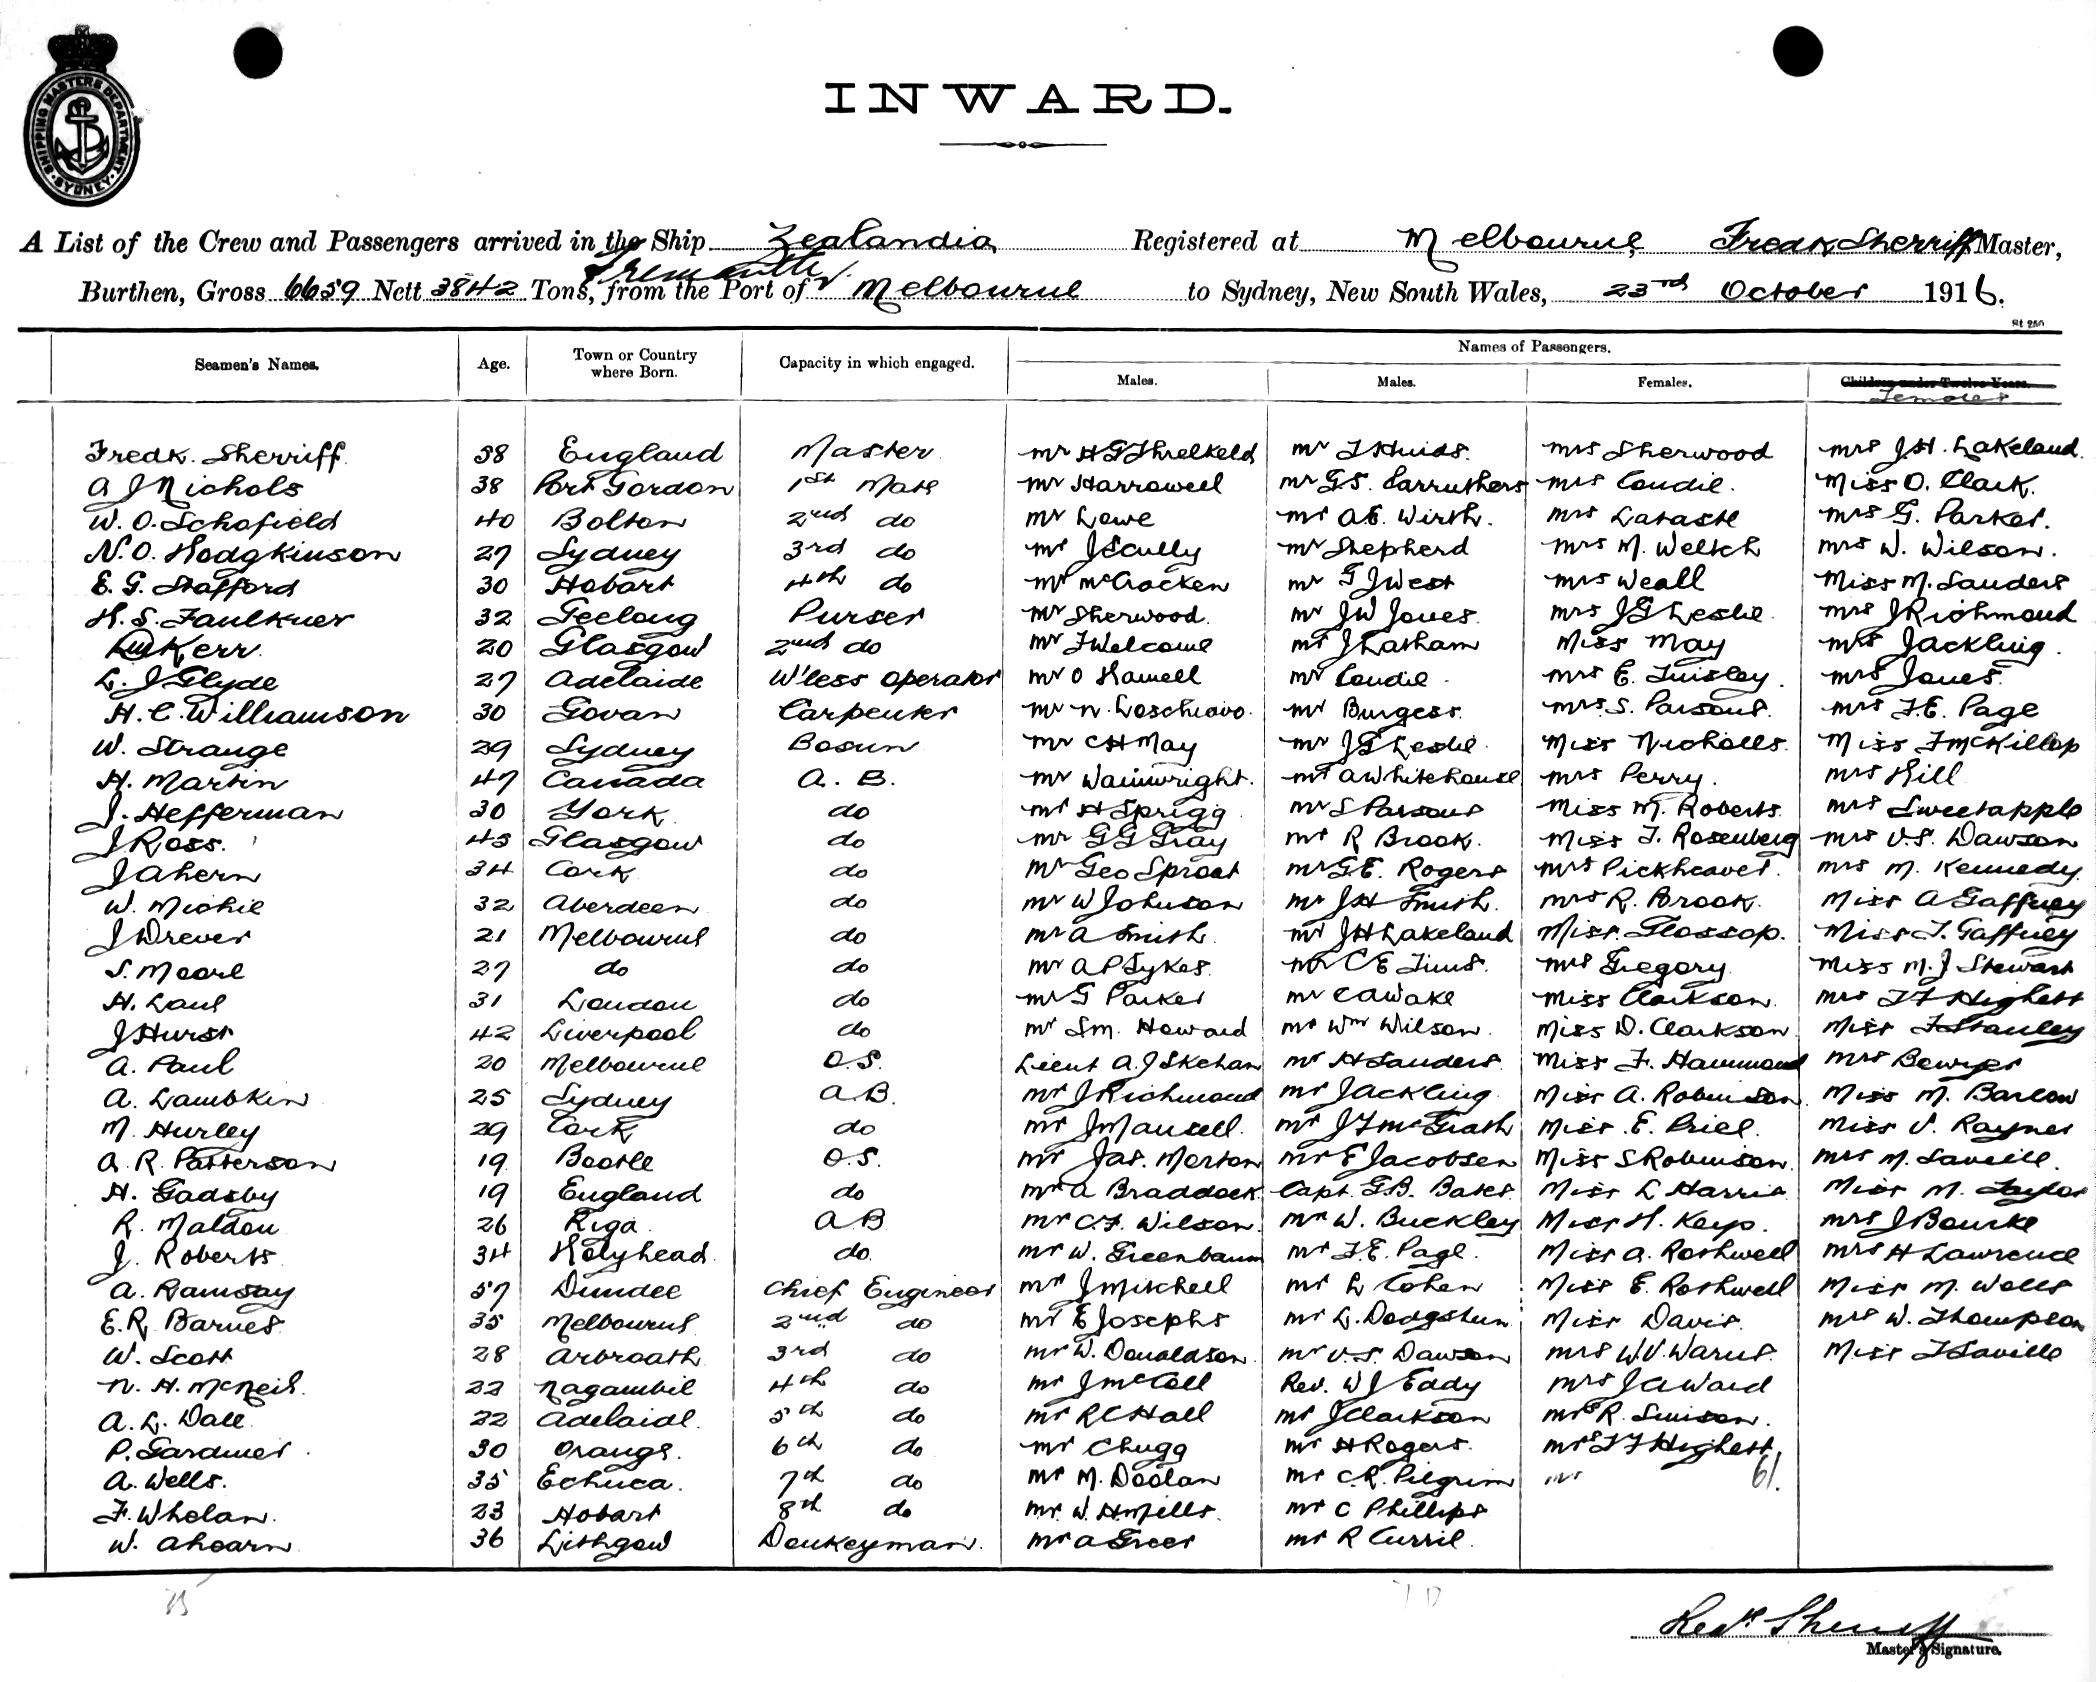 SHIPPING MASTERS DEPARTMENT. SYDNEY.
INWARD.
A List of the Crew and Passengers arrived in the Ship Zealandia Registered at Melbourne, Fredk Sherriff Master,
Burthen, Gross 6659 Nett 3842 Tons, from the Port of Fremantle v. Melbourne to Sydney, New South Wales, 23rd October 1916.
St 250
Seamen's Names. Age. Town or Country where Born. Capacity in which engaged. Names of Passengers.
Males. Males. Females. Children under Twelve Years.
Females
Fredk. Sherriff 38 England Master Mr H G Threlkeld Mr Mrs Sherwood Mrs J.H. Lakeland
A J Nichols 38 Port Gordon 1st Mate Mr Harrowell Mr G.S. Carruthers Mrs Coudie. Miss O. Clark.
W. O. Schofield 40 Bolton 2nd do Mr Lowe Mr A.E. Wirth. Mrs Mrs G. Parker.
N. O. Hodgkinson 27 Sydney 3rd do Mr J Scully Mr Shepherd Mrs M. Welsch Mrs W. Wilson.
E. G. Stafford 30 Hobart 4th do Mr McCracken Mr G J West Mrs Weall Miss M. Sanders
H. S. Faulkner 32 Geelong Purser Mr Sherwood. Mr J W Jones Mrs J G Leslie. Mrs J Richmond
Kerr 20 Glasgow 2nd do Mr F Welcome Mr J Latham Miss May Mrs Jackling.
L. J Glyde 27 Adelaide W'less operator Mr O Hamell Mr Coudie. Mrs E. Mrs Jones
H. C. Williamson 30 Govan Carpenter Mr N. Loschiavo. Mr Burgess. Mrs S. Parsons. Mrs F.E. Page
W. Strange 29 Sydney Bosun Mr C H May Mr J G Leslie. Miss Nicholls. Miss F McKillop
H. Martin 47 Canada A. B. Mr Wainwright. Mr A Whitehouse Mrs Perry. Mrs Hill
J. Hefferman 30 York do Mr H Sprigg Mr S Parsons Miss M. Roberts. Mrs Sweetapple
J Ross. 43 Glasgow do Mr G G Gray Mr R Brook. Miss F. Rosenberg Mrs V.S. Dawson
J Ahern 34 Cork do Mr Geo Sproat Mr G.E. Rogers Mrs Pickheaver. Mrs M. Kennedy.
W. Michie 32 Aberdeen do Mr W Johnson Mr J H Smith. Mrs R. Brook. Miss A Gaffney
J Drever 21 Melbourne do Mr A Smith. Mr J H Lakeland Miss. Glossop. Miss F. Gaffney
S. Moore 27 do do Mr A P Sykes. Mr C E Tims. Mrs Gregory. Miss M. J Stewart
H. Laul 31 London do Mr G Parker Mr C A Wake Miss Clarkson. Mrs T F Highett
J Hurst 42 Liverpool do Mr S M. Howard Mr Wm Wilson. Miss D. Clarkson Miss F Stanley
A. Paul 20 Melbourne O.S. Lieut A. J Skehan Mr H Sanders. Miss F. Hammond Mrs Bewyer
A. Lambkin 25 Sydney A B. Mr J Richmond Mr Jackling. Miss A. Robinson. Miss M. Barlow
M. Hurley 29 Cork do Mr J Mansell. Mr J F McGrath Miss. E. Priel. Miss V. Rayner
A. R. Patterson 19 Bootle O.S. Mr Jas. Morton Mr E Jacobsen Miss S Robinson. Mrs M. Saville.
H. Gadsby 19 England do Mr A Braddock. Capt. G.B. Bates. Miss L Harris Miss M. Taylor
R. Maldou 26 Riga A B Mr C.F. Wilson. Mr W. Buckley Miss H. Keys. Mrs J Bourke
J. Roberts 34 Holyhead. do. Mr W. Greenbaum Mr F.E. Page. Miss A. Rothwell Mrs H Lawrence
A. Ramsay 57 Dundee Chief Engineer Mr J Mitchell Mr L Cohen Miss E. Rothwell Miss M. Wells
E. R. Barnes 35 Melbourne 2nd do Mr E Josephs Mr L. Dodgshun. Miss Davis. Mrs W. Thompson
W. Scott 28 Arbroath. 3rd do Mr W. Donaldson. Mr V.S. Dawson Mrs W V. Warus. Miss F Saville
N. H. McNeil. 22 Nagambie 4th do Mr J McColl Rev. W J Eady Mrs J A Ward
A. L. Dale. 22 Adelaide. 5th do Mr R C Hall Mr J Clarkson Mrs R. Smison.
P. Gardiner. 30 Orange. 6th do Mr Chugg Mr H Rogers. Mrs T F Highett,
A. Wells. 35 Echuca. 7th do Mr M. Doolan Mr C. R. Pilgrim 61.
F. Whelan. 23 Hobart 8th do Mr W. H Mills. Mr C Phillips
W. Ahearn. 36 Lithgow Donkeyman. Mr A Greer Mr R Curril.
Fredk Sherriff
Master's Signature.